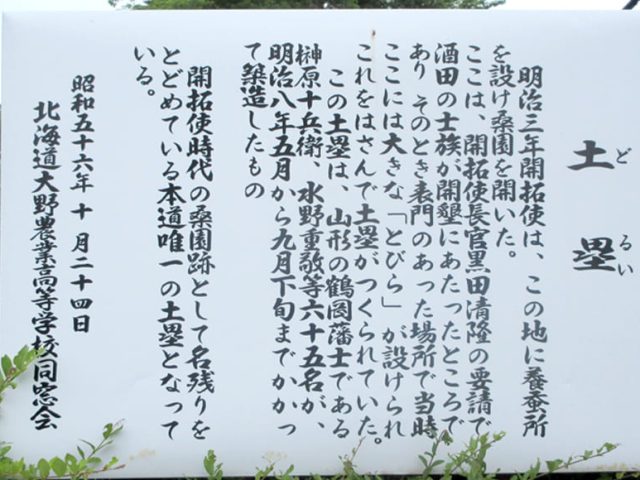 土塁
どるい
明治三年開拓使は、この地に養蚕所
を設け桑園を開いた。
ここは、開拓使長官黒田清隆の要請で
酒田の士族が開墾にあたったところで
あり そのとき表門のあった場所で当時
ここには大きな「とびら」が設けられ
これをはさんで土塁がつくられていた。
この土塁は、山形の鶴岡藩士である
榊原十兵衛、水野重敬等六十五名が、
明治八年五月から九月下旬までかかっ
て築造したもの
開拓使時代の桑園跡として名残りを
とどめている本道唯一の土塁となって
いる。
昭和五十六年 十 月二十四日
北海道大野農業高等学校同窓会